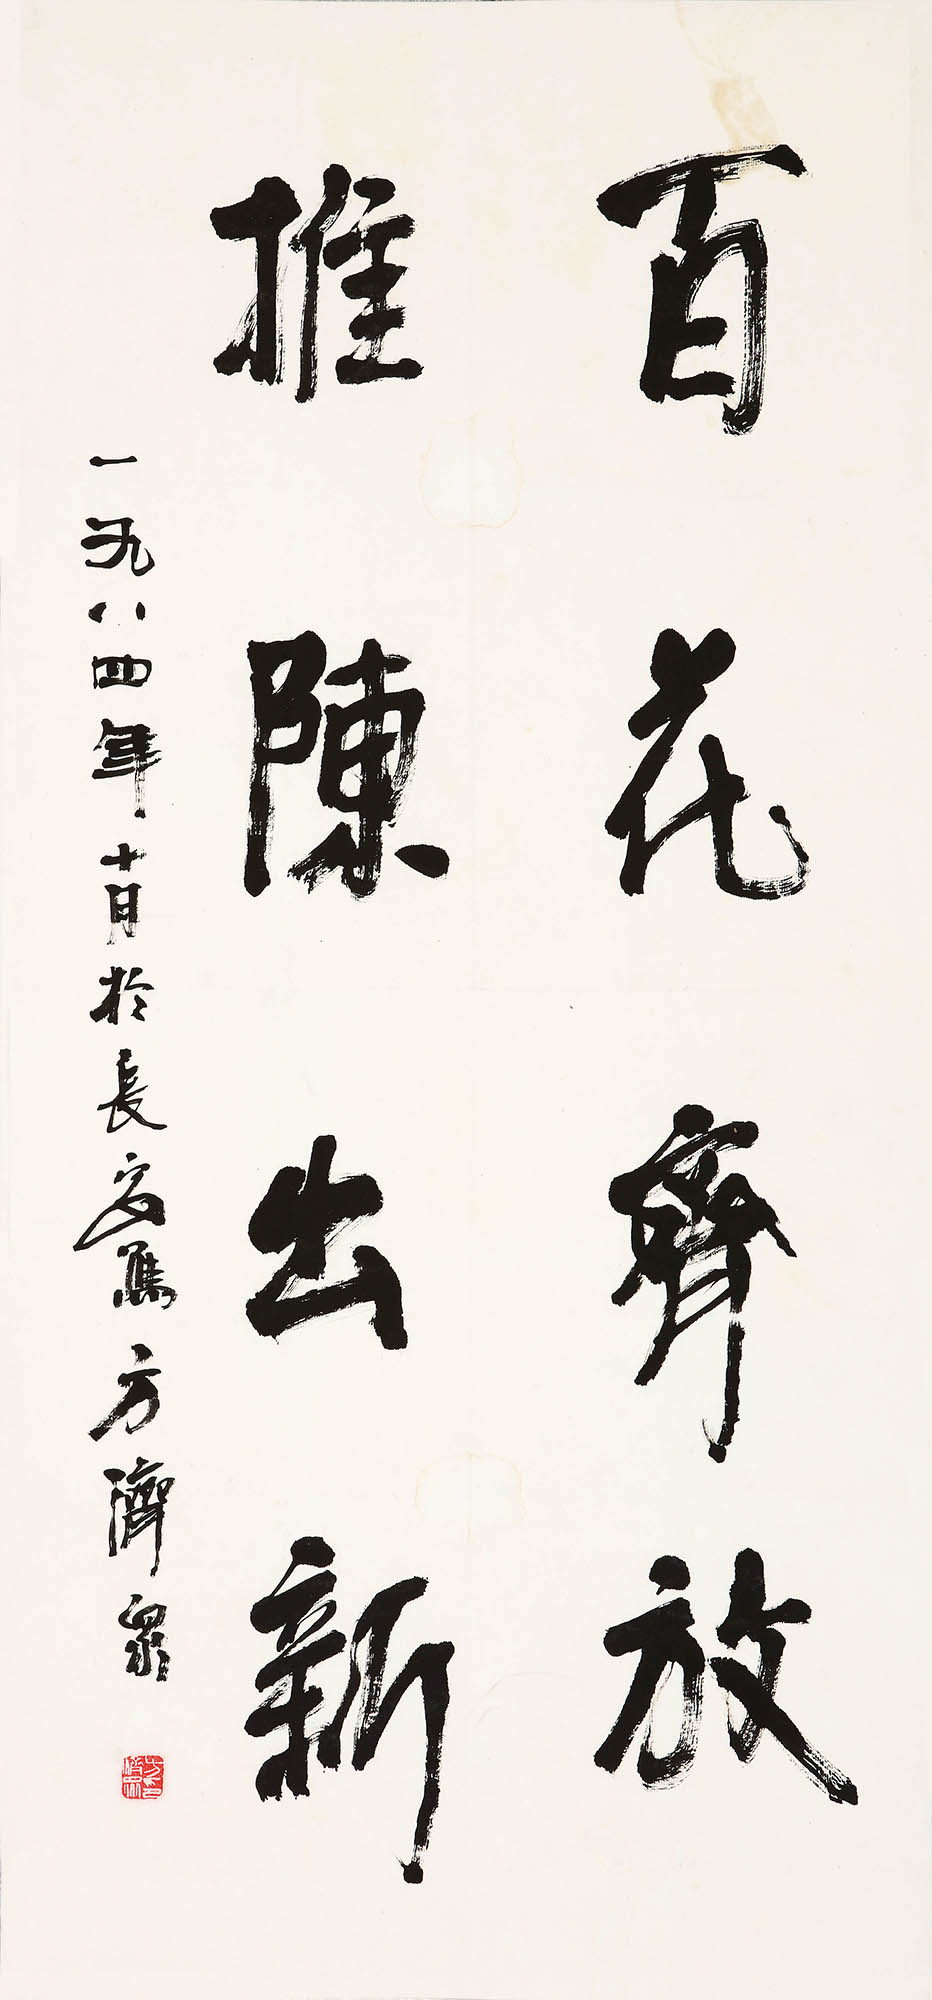 百花齊放
推陳出新
一九八四年十月於長安寫方濟眾